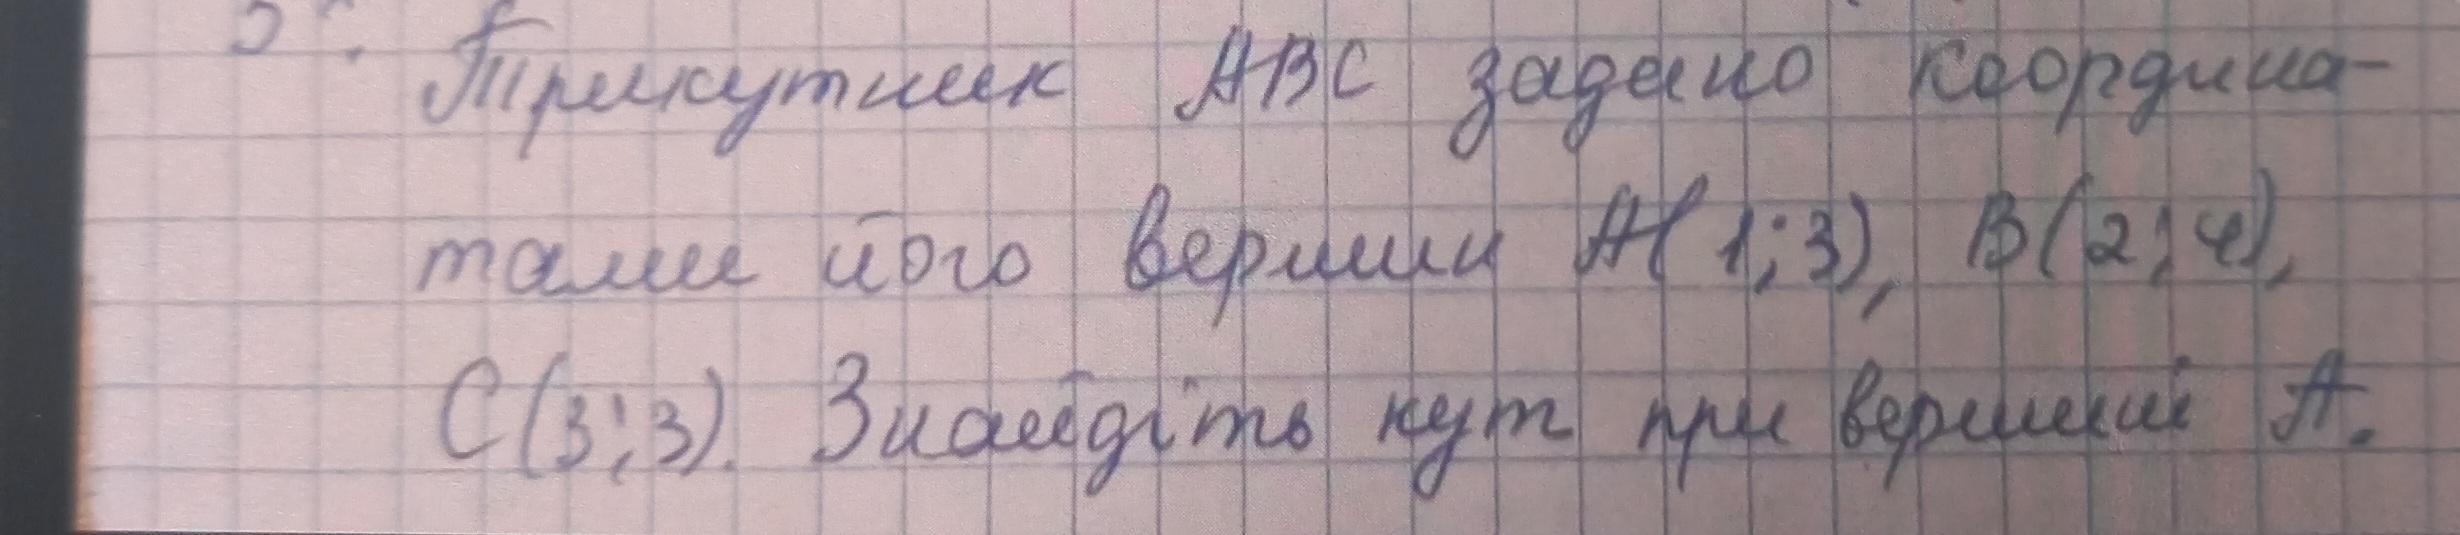 Трикутник АВС задано координа-
тами його вершин А(1;3), В(2;4),
С(3;3). Знайдіть кут при вершині А.